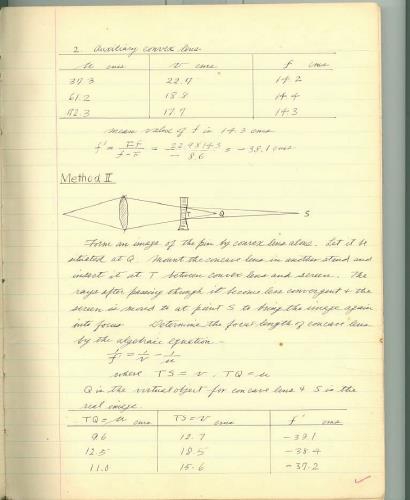 2. Auxiliary convex lens.
u cms v cms f cms
37.3 22.9 14.2
61.2 18.8 14.4
72.3 17.7 14.3
mean value of f is 14.3 cms
f' = Ff / f-F = 22.9 x 14.3 / - 8.6 = - 38.1 cms
Method II
T Q S
Form an image of the pin by convex lens alone. Let it be
situated at Q. Mount the concave lens in another stand and
insert it at T between convex lens and screen. The
rays after passing through it become less convergent & the
screen is moved to at point S to bring the image again
into focus. Determine the focus length of concave lens
by the algebraic equation -
1/f = 1/v - 1/u
where TS = v , TQ = u
Q is the virtual object for concave lens & S is the
real image.
TQ = u cms TS = v cms f' cms
9.6 12.7 - 39.1
12.5 18.5 - 38.4
11.0 15.6 - 37.2